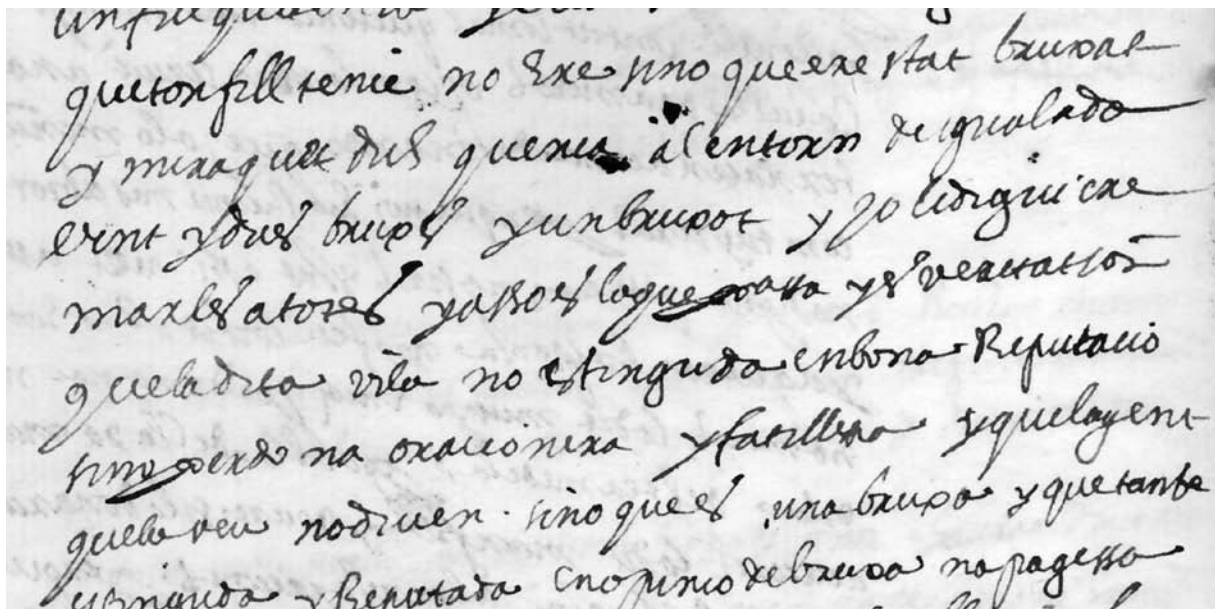 que ton fill tenie no ere sino que ere stat bruxat
y mira que et dich que n ia al entorn de igualada
vint y dues bruxes y un bruxot y jo li digui cre
marles a totes y asso es lo que passa y es veritat
que la dita vila no es tinguda en bona Reputacio
sino per dona oracionera y fatillera y que la gent
que la veu no diuen sino que es una bruxa y que tambe
es tinguda y Reputada en opinio de bruxa na pagessa